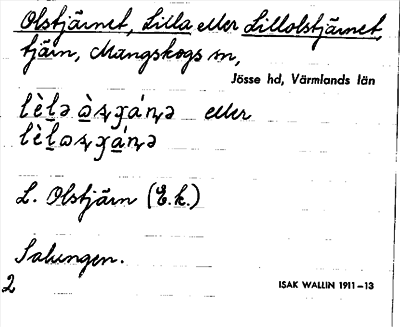 Olstjärnet, Lilla eller Lillolstjärnet,
tjärn, Mangskogs sn,
Jösse hd, Värmlands län
eller
L. Olstjärn (E.k.)
Salungen.
2
ISAK WALLIN 1911–13